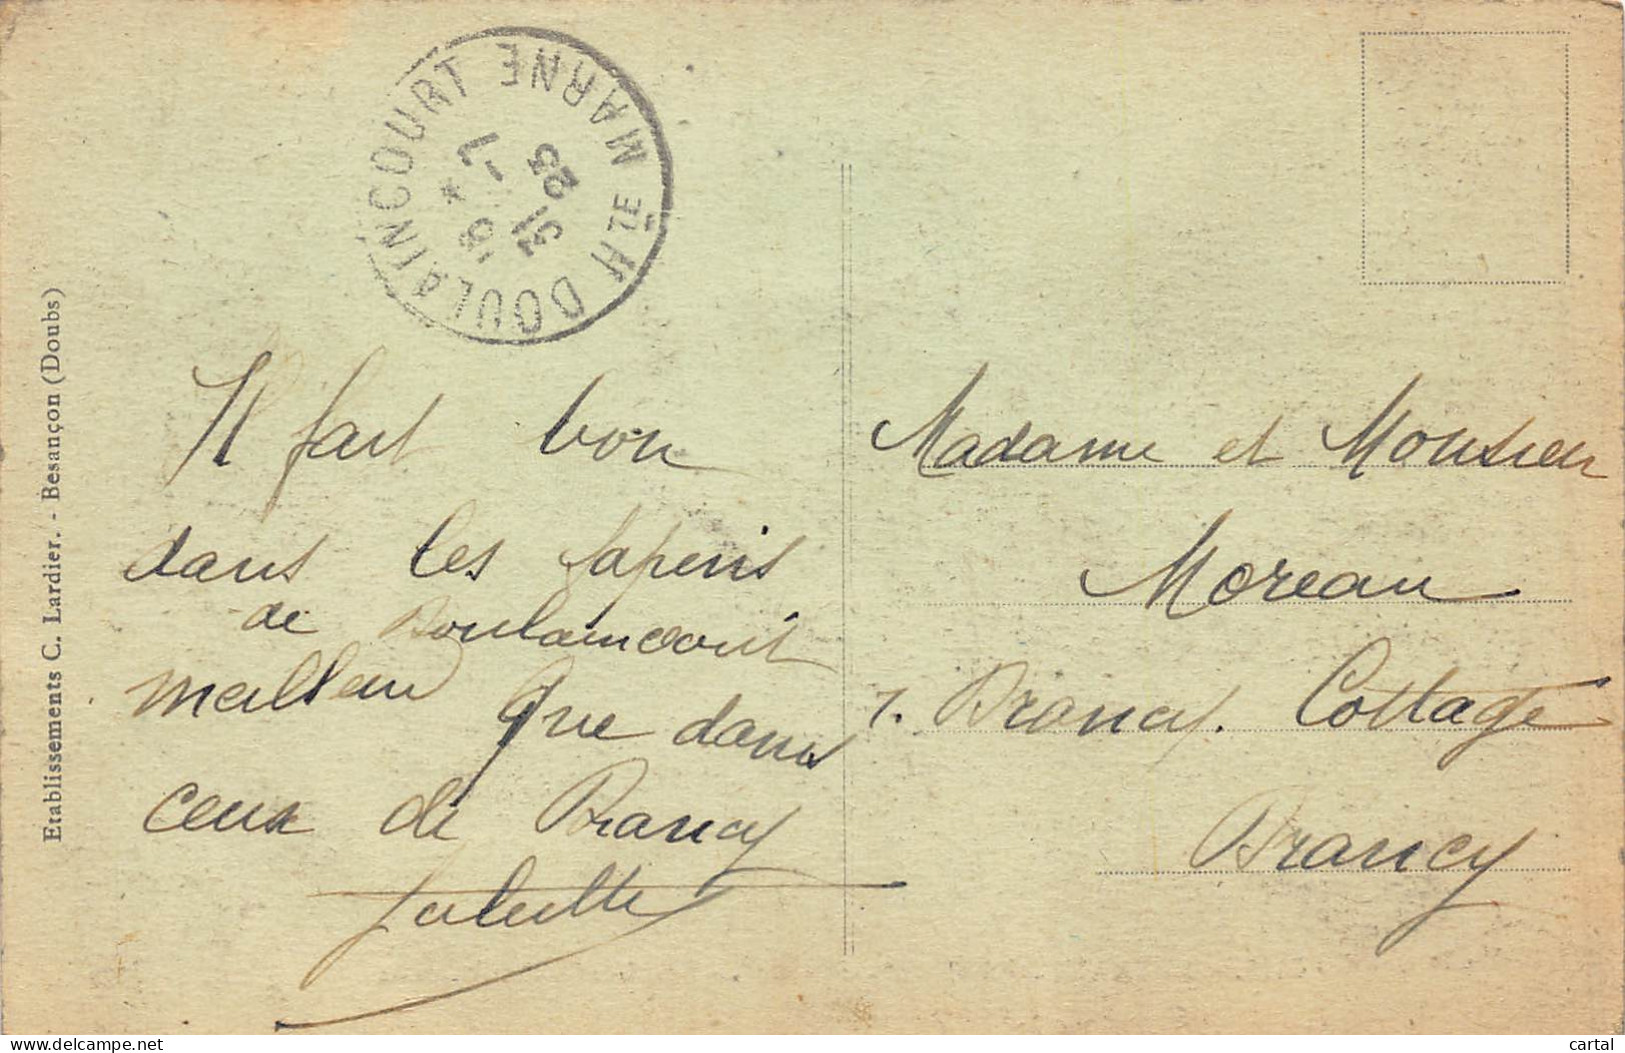 DOULAINCOURT
HTE MARNE
Il fait bon
dans les sapins
de Doulaincourt
meilleur que dans
ceux de Brancy
Juliette
Madame et Monsieur
Moreau
7. Brancy. Cottage
Brancy
Etablissements C. Lardier. - Besançon (Doubs)
delcampe.net
cartal